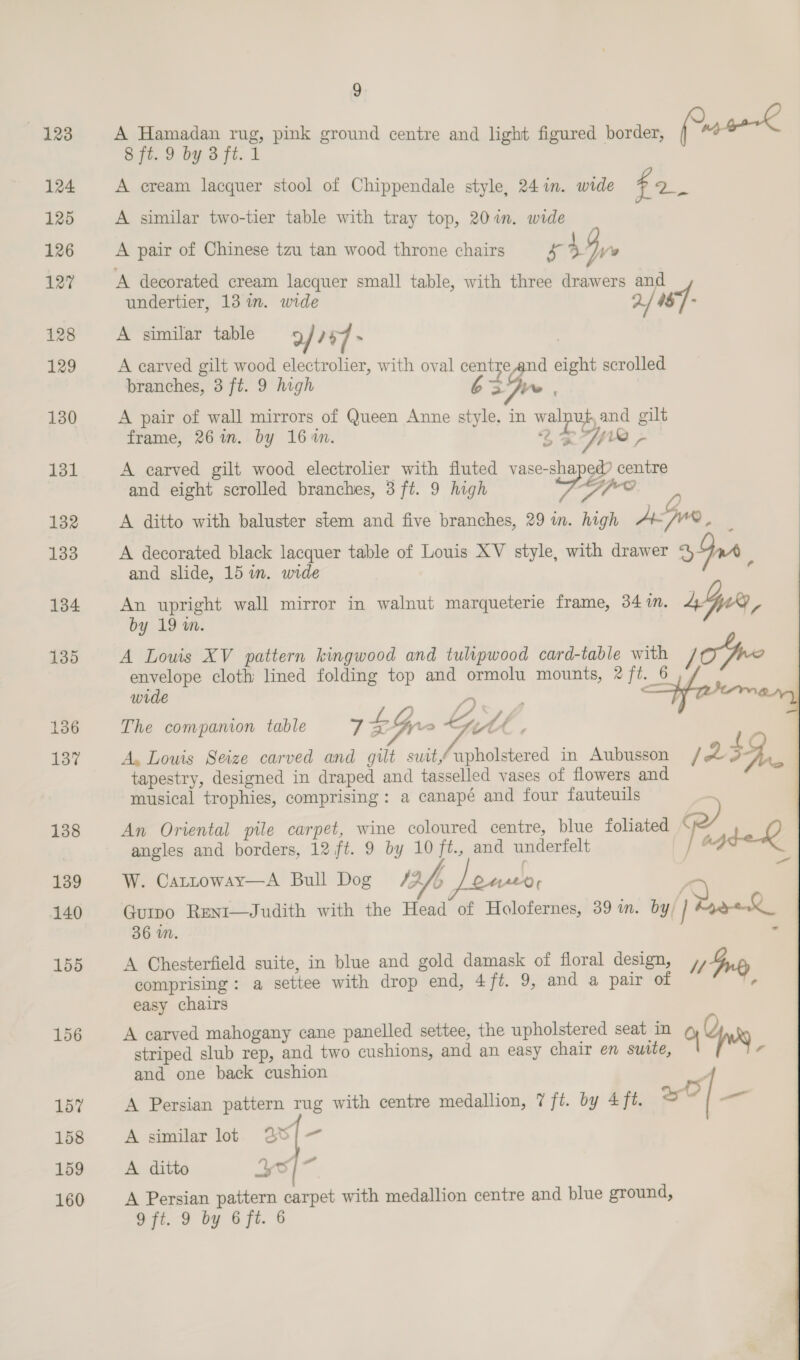 9
123 A Hamadan rug, pink ground centre and light figured border,
8 ft. 9 by 3 ft. 1
124 A cream lacquer stool of Chippendale style, 24 in. wide £2
125 A similar two-tier table with tray top, 20 in. wide
126 A pair of Chinese tzu tan wood throne chairs
127 A decorated cream lacquer small table, with three drawers and
undertier, 13 in. wide 2/15/-
128 A similar table 2/15/-
129 A carved gilt wood electrolier, with oval centre and eight scrolled
branches, 3 ft. 9 high
130 A pair of wall mirrors of Queen Anne style, in walnut and gilt
frame, 26 in. by 16 in.
131 A carved gilt wood electrolier with fluted vase-shaped centre
and eight scrolled branches, 3 ft. 9 high 7 Gns
132 A ditto with baluster stem and five branches, 29 in. high 4 Gns.
133 A decorated black lacquer table of Louis XV style, with drawer 3 Gns
and slide, 15 in. wide
134 An upright wall mirror in walnut marqueterie frame, 34 in. 4 Gns,
by 19 in.
135 A Louis XV pattern kingwood and tulipwood card-table with 10 Gns
envelope cloth lined folding top and ormolu mounts, 2 ft. 6
wide
136 The companion table
137 A Louis Seize carved and gilt suit, upholstered in Aubusson
tapestry, designed in draped and tasselled vases of flowers and
musical trophies, comprising: a canapé and four fauteuils
138 An Oriental pile carpet, wine coloured centre, blue foliated
angles and borders, 12 ft. 9 by 10 ft., and underfelt
139 W. Calloway—A Bull Dog
140 Guido Reni—Judith with the Head of Holofernes, 39 in. by
36 in.
155 A Chesterfield suite, in blue and gold damask of floral design, 11 Gns
comprising: a settee with drop end, 4 ft. 9, and a pair of
easy chairs
156 A carved mahogany cane panelled settee, the upholstered seat in 9 Gns
striped slub rep, and two cushions, and an easy chair en suite,
and one back cushion
157 A Persian pattern rug with centre medallion, 7 ft. by 4 ft.
158 A similar lot
159 A ditto
160 A Persian pattern carpet with medallion centre and blue ground,
9 ft. 9 by 6 ft. 6